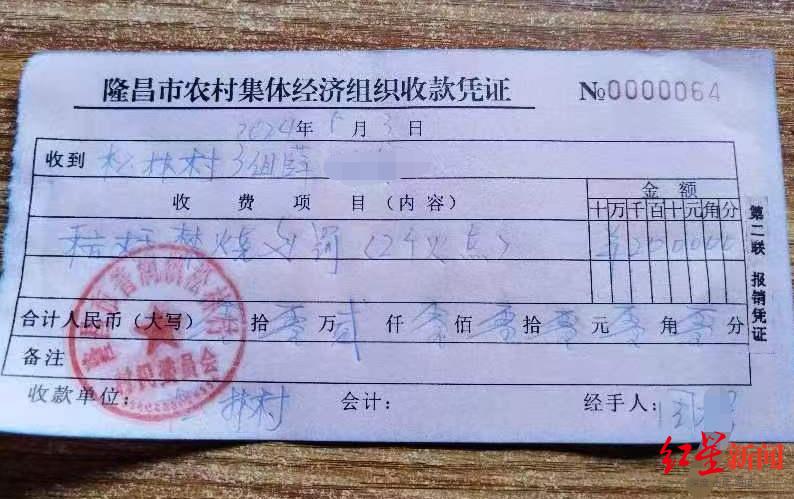 隆昌市农村集体经济组织收款凭证 №0000064
2024年5月3日
收到 松林村3组薛
收费项目(内容) 金额
十万千百十元角分
秸秆禁烧处罚(2个火点) ¥200000
合计人民币(大写) 零拾零万贰仟零佰零拾零元零角零分
备注
收款单位: 松林村 会计: 经手人: 周
第二联 报销凭证
村民委员会
红星新闻